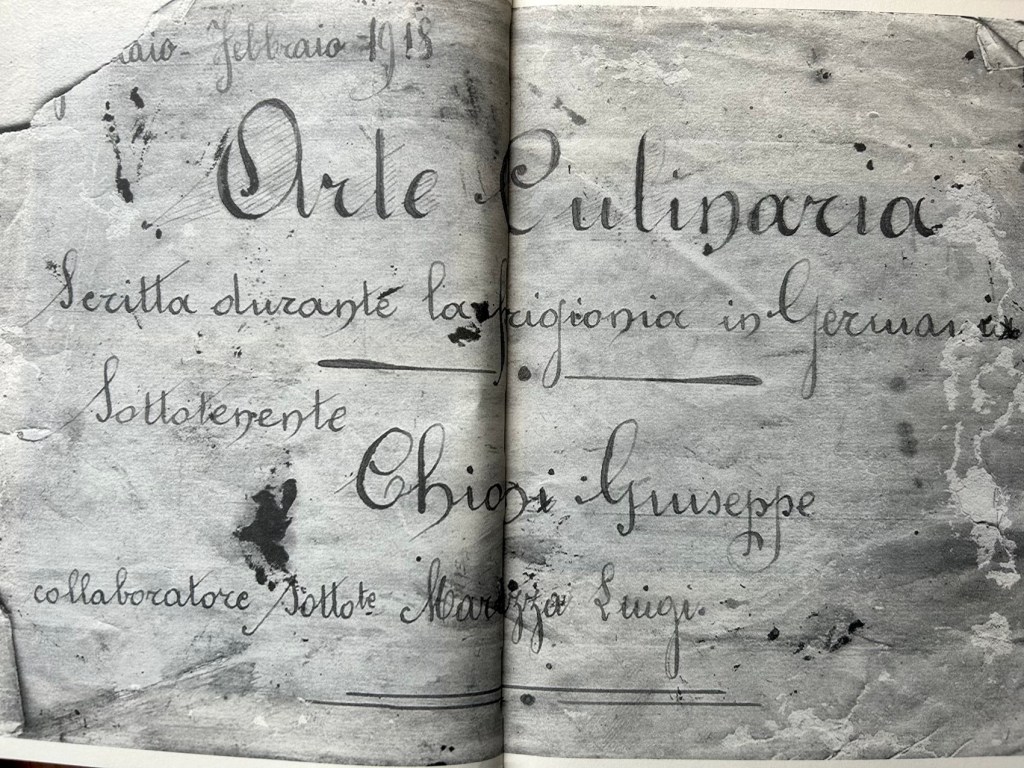 naio - Febbraio - 1918
Arte Culinaria
Scritta durante la prigionia in Germania
Sottotenente
Chiosi Giuseppe
collaboratore Sottote Marazza Luigi.